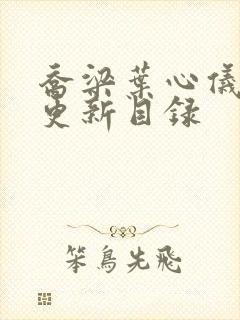 乔梁葉心儀
更新目録
笨鳥先飛